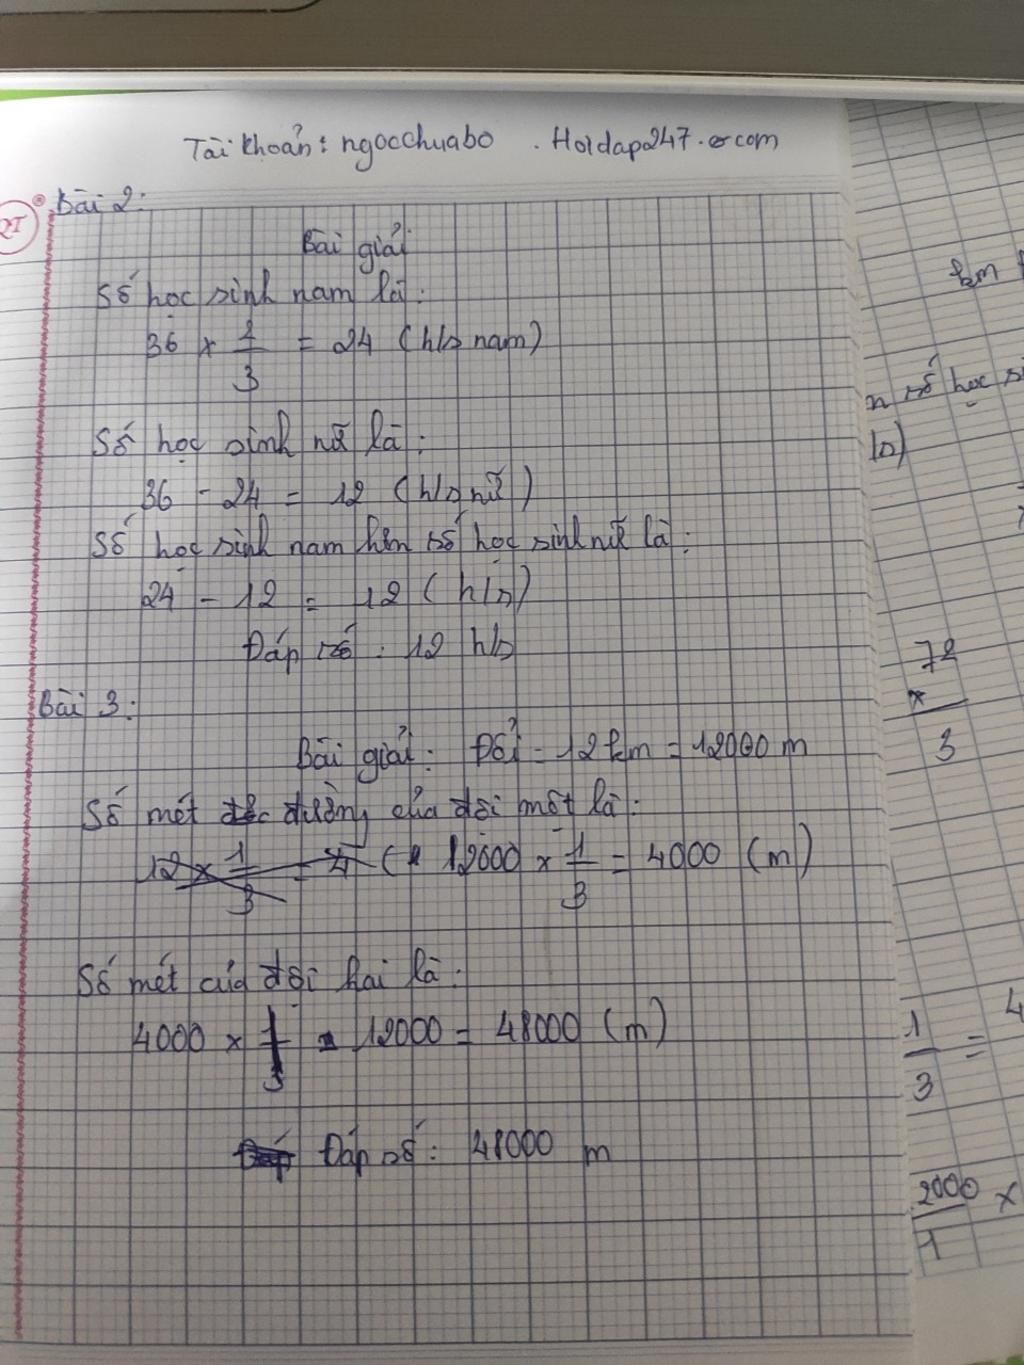 Tài khoản: ngocchuabo . Hoidap247.com
Bài 2:
Bài giải
Số học sinh nam là:
36 x 2/3 = 24 (h/s nam)
Số học sinh nữ là:
36 - 24 = 12 (h/s nữ)
Số học sinh nam hơn số học sinh nữ là:
24 - 12 = 12 (h/s)
Đáp số: 12 h/s
Bài 3:
Bài giải: Đổi - 12km = 12000 m
Số mét đường của đội một là:
12000 x 1/3 = 4000 (m)
Số mét của đội hai là:
4000 x 12000 = 48000 (m)
Đáp số: 48000 m
km
số học
72
x
3
1/3 =
2000/1 x